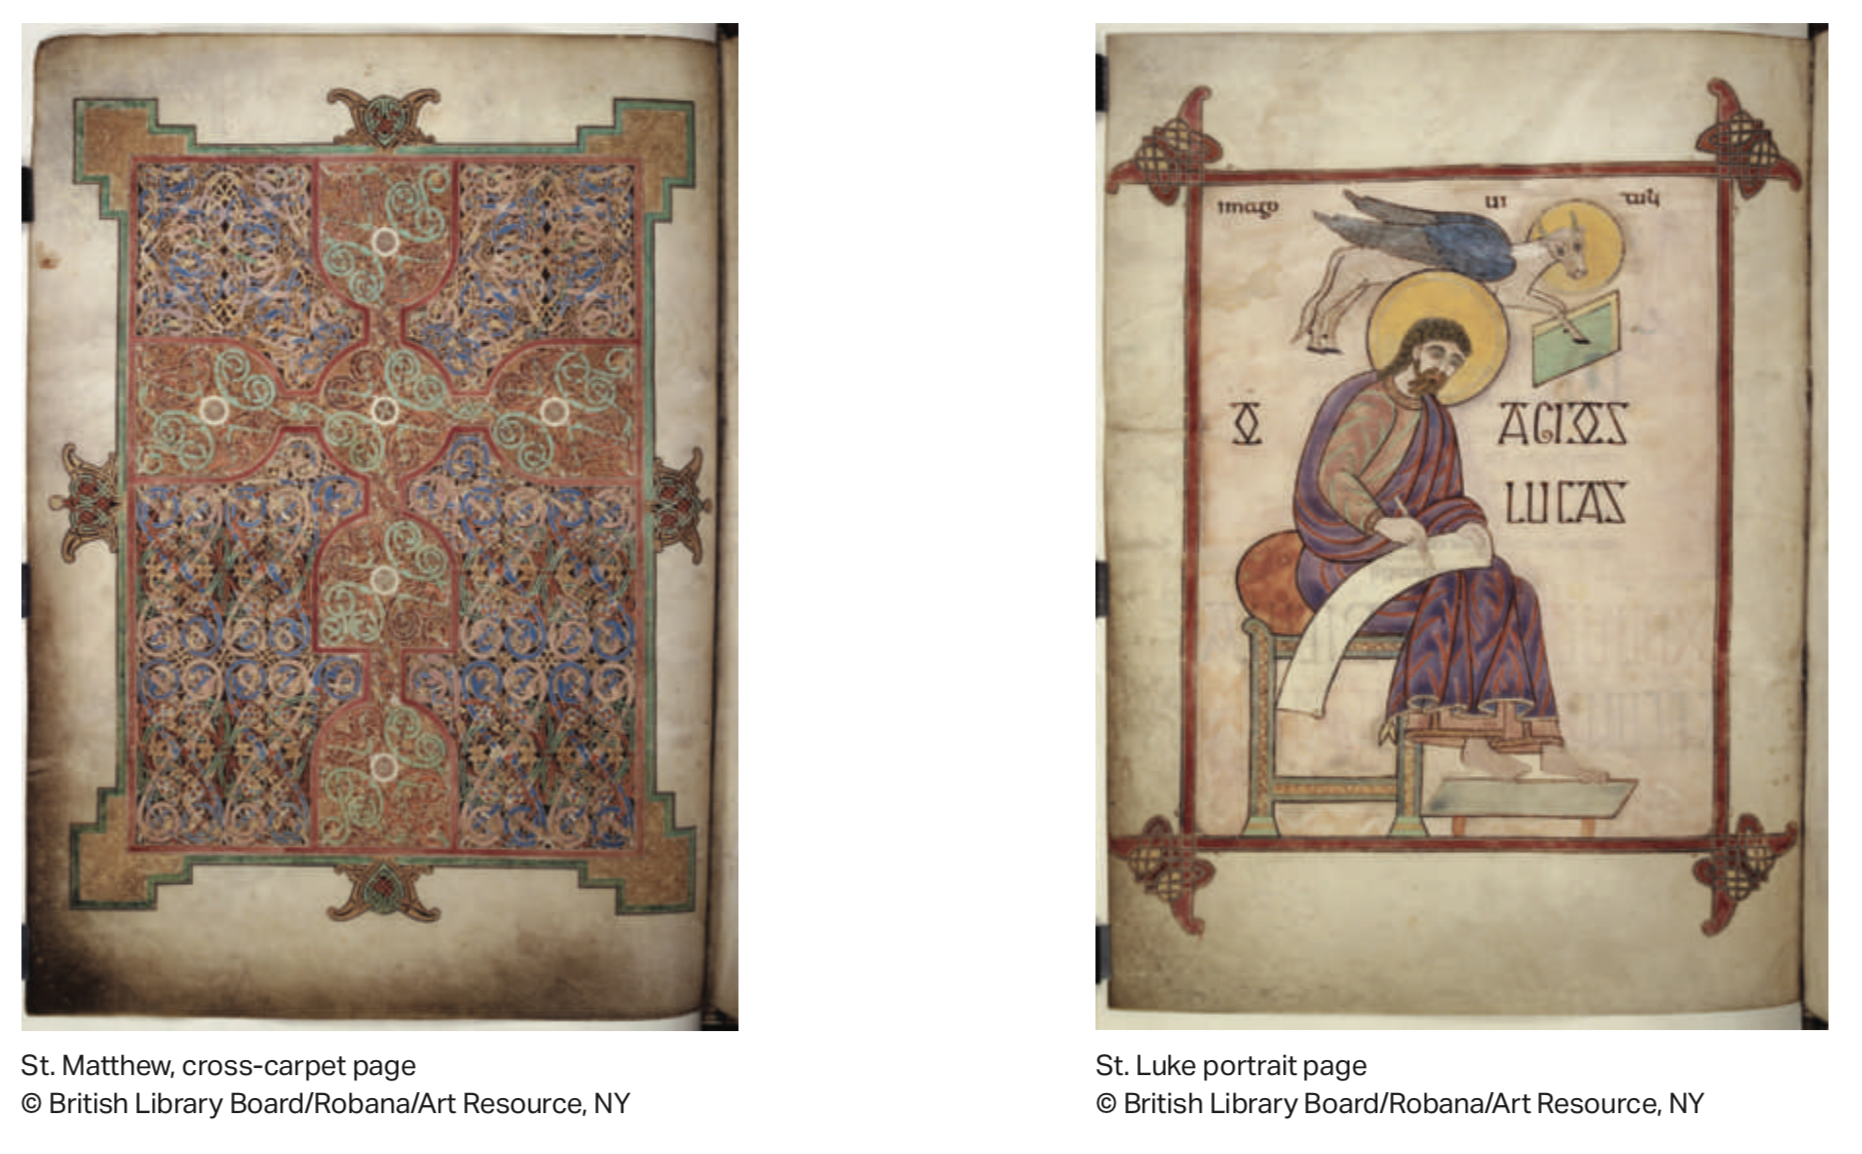 imago ui tuli
O AGIOS
LUCAS
St. Matthew, cross-carpet page
© British Library Board/Robana/Art Resource, NY
St. Luke portrait page
© British Library Board/Robana/Art Resource, NY